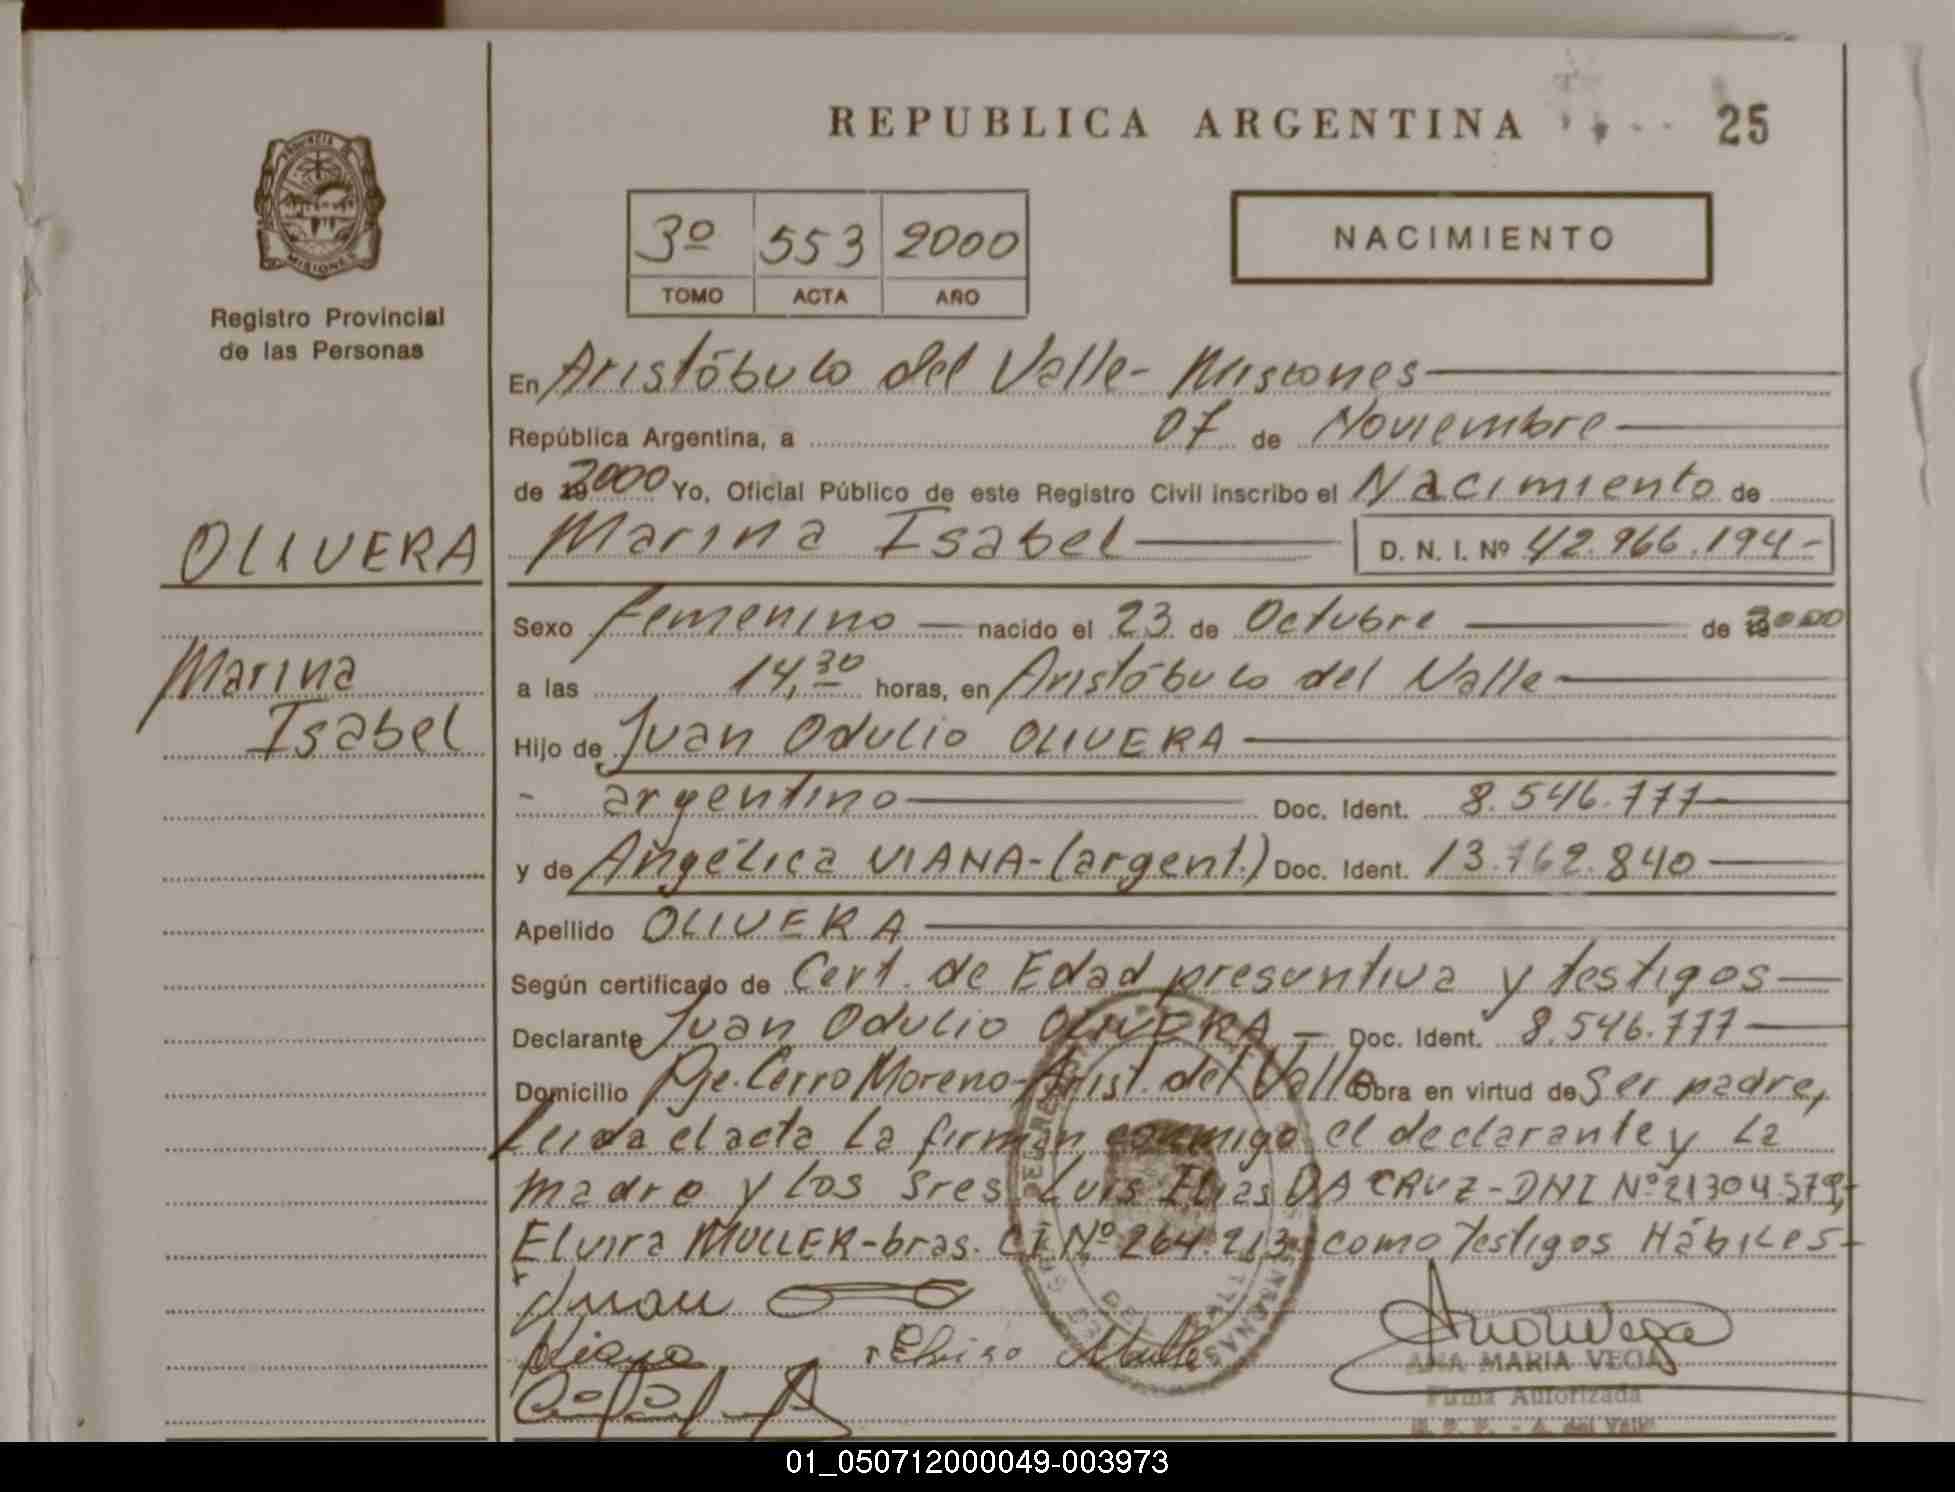 REPUBLICA ARGENTINA
25
PROVINCIA DE
MISIONES
Registro Provincial
de las Personas
3º 553 2000
TOMO ACTA AÑO
NACIMIENTO
En Aristóbulo del Valle - Misiones
República Argentina, a 07 de Noviembre
de 2000 Yo, Oficial Público de este Registro Civil inscribo el Nacimiento de
Marina Isabel D. N. I. Nº 42.966.194-
OLIVERA
Marina
Isabel
Sexo femenino nacido el 23 de Octubre de 2000
a las 14,30 horas, en Aristóbulo del Valle
Hijo de Juan Odulio OLIVERA
- argentino Doc. Ident. 8.546.777
y de Angélica VIANA - (argent.) Doc. Ident. 13.762.840
Apellido OLIVERA
Según certificado de Cert. de Edad presuntiva y testigos
Declarante Juan Odulio OLIVERA - Doc. Ident. 8.546.777
Domicilio Pje. Cerro Moreno - Arist. del Valle Obra en virtud de Ser padre,
Leida el acta la firman conmigo el declarante y la
madre y los Sres. Luis Elias DA CRUZ - DNI Nº 21304.579,-
Elvira MULLER - bras. CI Nº 264.213, como Testigos Hábiles -
Juan
Viana Elvira Muller
ANA MARIA VEGA
Firma Autorizada
R. P. P. - A. del Valle
01_050712000049-003973